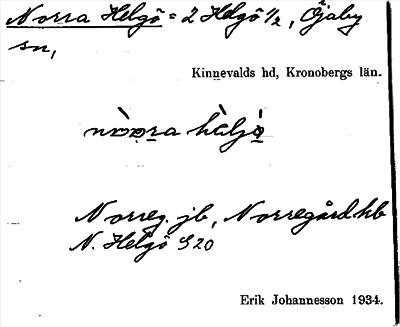 Norra Helgö = 2 Helgö 1/2, Öjaby
sn,
Kinnevalds hd, Kronobergs län.
Norreg. jb, Norregård hb
N. Helgö S 20
Erik Johannesson 1934.